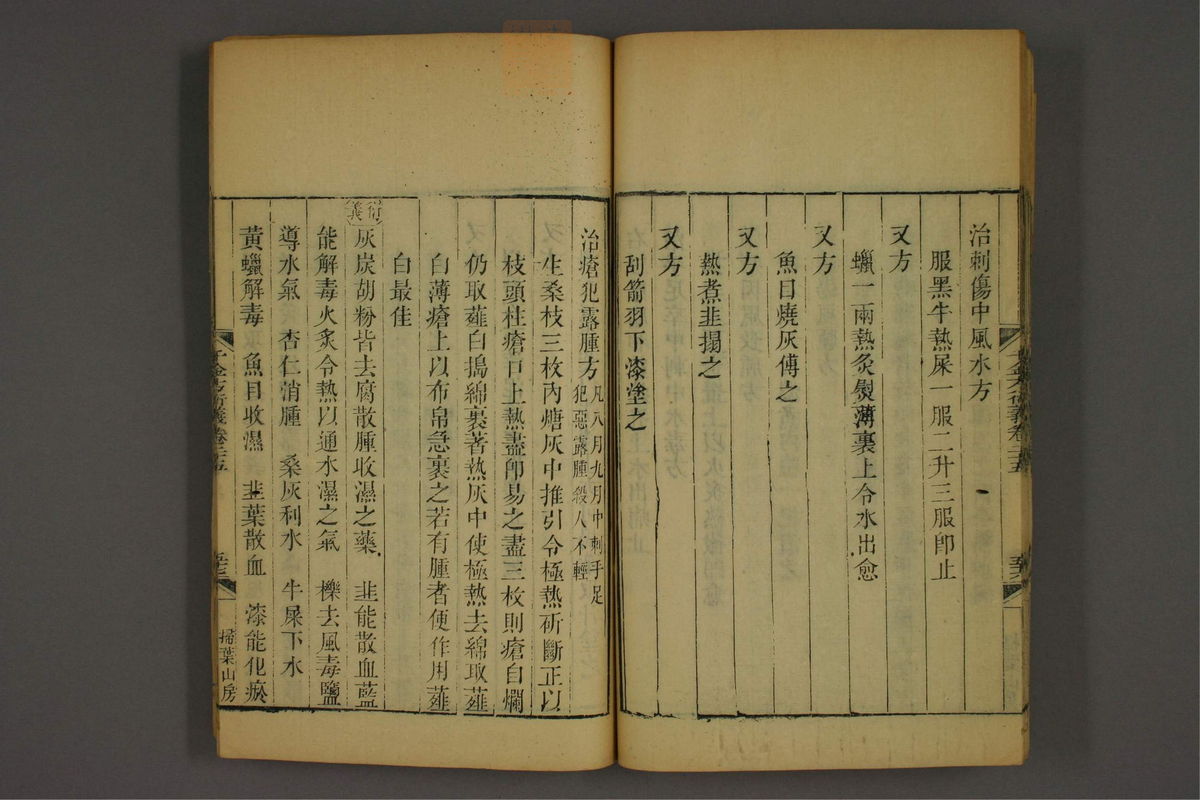 治刺傷中風水方
服黑牛熱屎一服二升三服卽止
又方
蠟一兩熱炙熨薄裏上令水出愈
又方
魚目燒灰傅之
又方
熱煮韭搨之
又方
刮箭羽下漆塗之
治瘡犯露腫方凡八月九月中刺手足犯惡露腫殺人不輕
生桑枝三枚內煻灰中推引令極熱斫斷正以
枝頭柱瘡口上熱盡卽易之盡三枚則瘡自爛
仍取薤白搗綿裹著熱灰中使極熱去綿取薤
白薄瘡上以布帛急裹之若有腫者便作用薤
白最佳
衍義
灰炭胡粉皆去腐散腫收濕之藥 韭能散血藍
能解毒火炙令熱以通水濕之氣 櫟去風毒鹽
導水氣 杏仁消腫 桑灰利水 牛屎下水
黃蠟解毒 魚目收濕 韭葉散血 漆能化瘀
千金方衍義卷二十五
掃葉山房